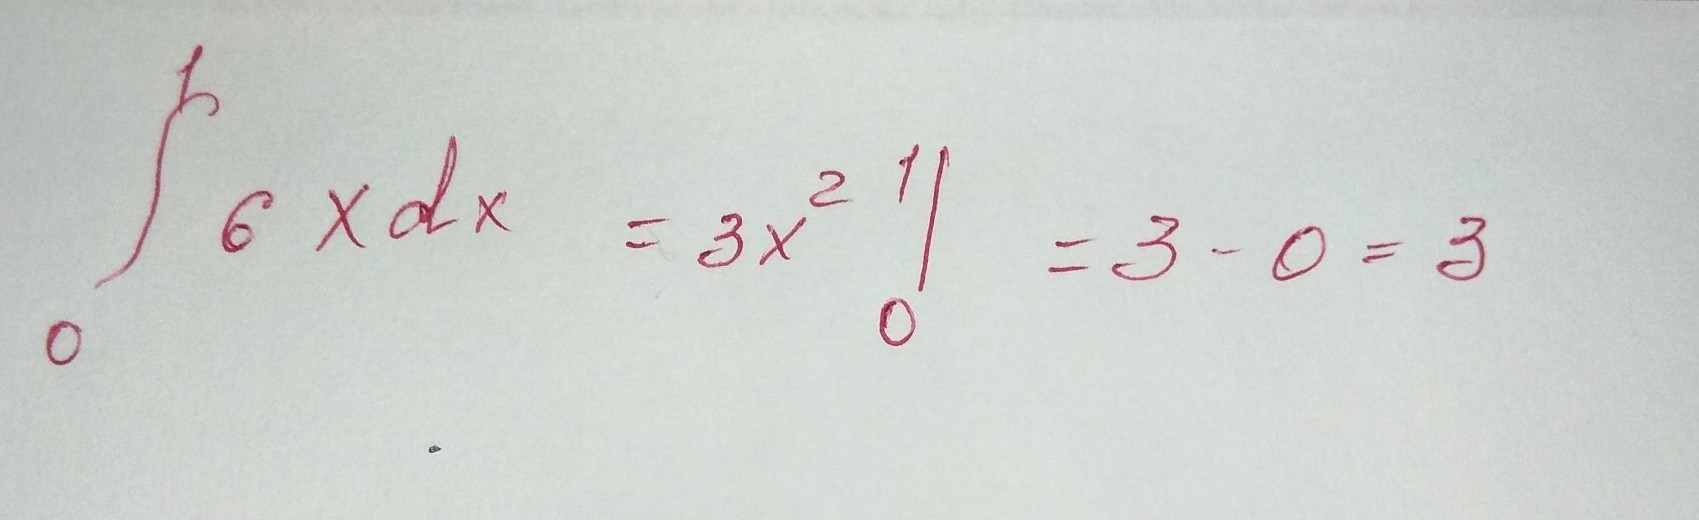 ∫₀¹ 6xdx = 3x² |₀¹ = 3 - 0 = 3